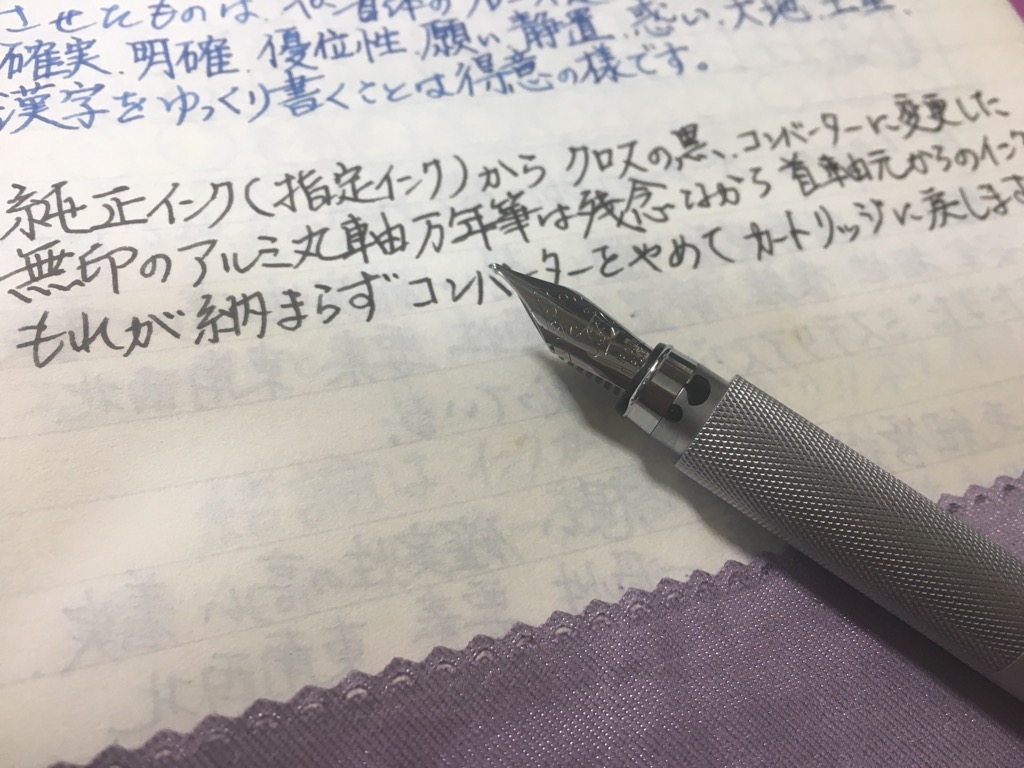 させたものは、
確実、明確、優位性、願い、静置、惑い、大地、土星、
漢字をゆっくり書くことは得意の様です。
純正インク(指定インク)から クロスの黒、コンバーターに変更した
無印のアルミ丸軸万年筆は残念ながら 首軸元からのインク
もれが納まらず コンバーターをやめて カートリッジに戻します